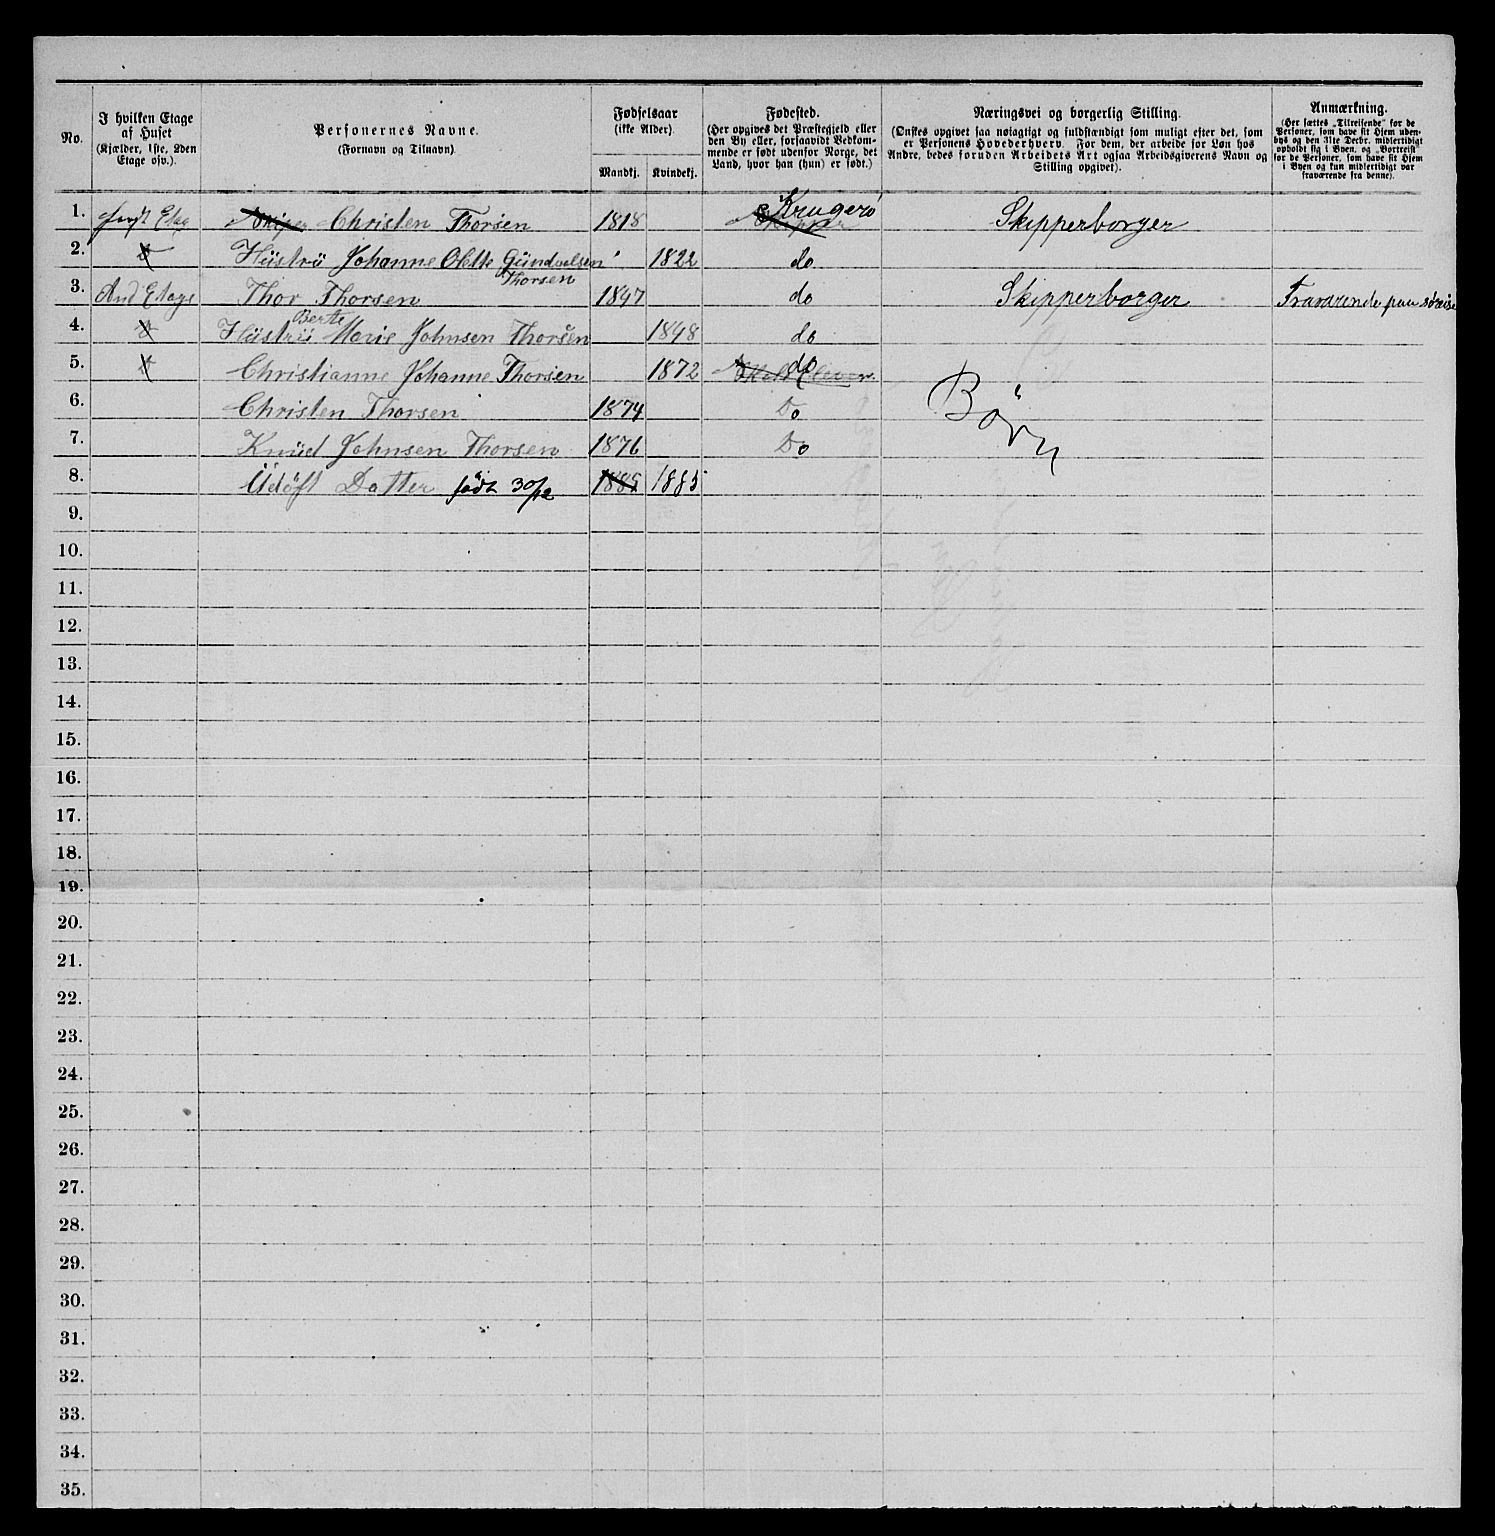 No.
I hvilken Etage af Huset (Kjælder, 1ste, 2den Etage osv.).
Personernes Navne.
(Fornavn og Tilnavn).
Fødselsaar
(ikke Alder).
Mandkj. Kvindekj.
Fødested.
(Her opgives det Præstegjeld eller
den By eller, forsaavidt Vedkom-
mende er født udenfor Norge, det
Land, hvor han (hun) er født.)
Næringsvei og borgerlig Stilling.
(Ønskes opgivet saa nøiagtigt og fuldstændigt som muligt efter det, som
er Personens Hovederhverv. For dem, der arbeide for Løn hos
Andre, bedes foruden Arbeidets Art ogsaa Arbeidsgiverens Navn og
Stilling opgivet).
Anmærkning.
(Her sættes „Tilreisende" for de
Personer, som have sit Hjem uden-
bys og den 31te Decbr. midlertidigt
opholdt sig i Byen, og „Bortreist"
for de Personer, som have sit Hjem
i Byen og kun midlertidigt var
fraværende fra denne).
1. Etag Christen Thorsen 1818 Krugerö Skipperborger
2. Hüströ Johanne Olette Gündvelsen Thorsen 1822 do
3. And Etage Thor Thorsen 1847 do Skipperborger Fraværende paa söreise
4. Hüströ Berte Marie Johnsen Thorsen 1848 do
5. Christianne Johanne Thorsen 1872 do
6. Christen Thorsen 1874 Do Börn
7. Knüd Johnsen Thorsen 1876 Do
8. Üdöft Datter født 30/12 1885 1885
9.
10.
11.
12.
13.
14.
15.
16.
17.
18.
19.
20.
21.
22.
23.
24.
25.
26.
27.
28.
29.
30.
31.
32.
33.
34.
35.